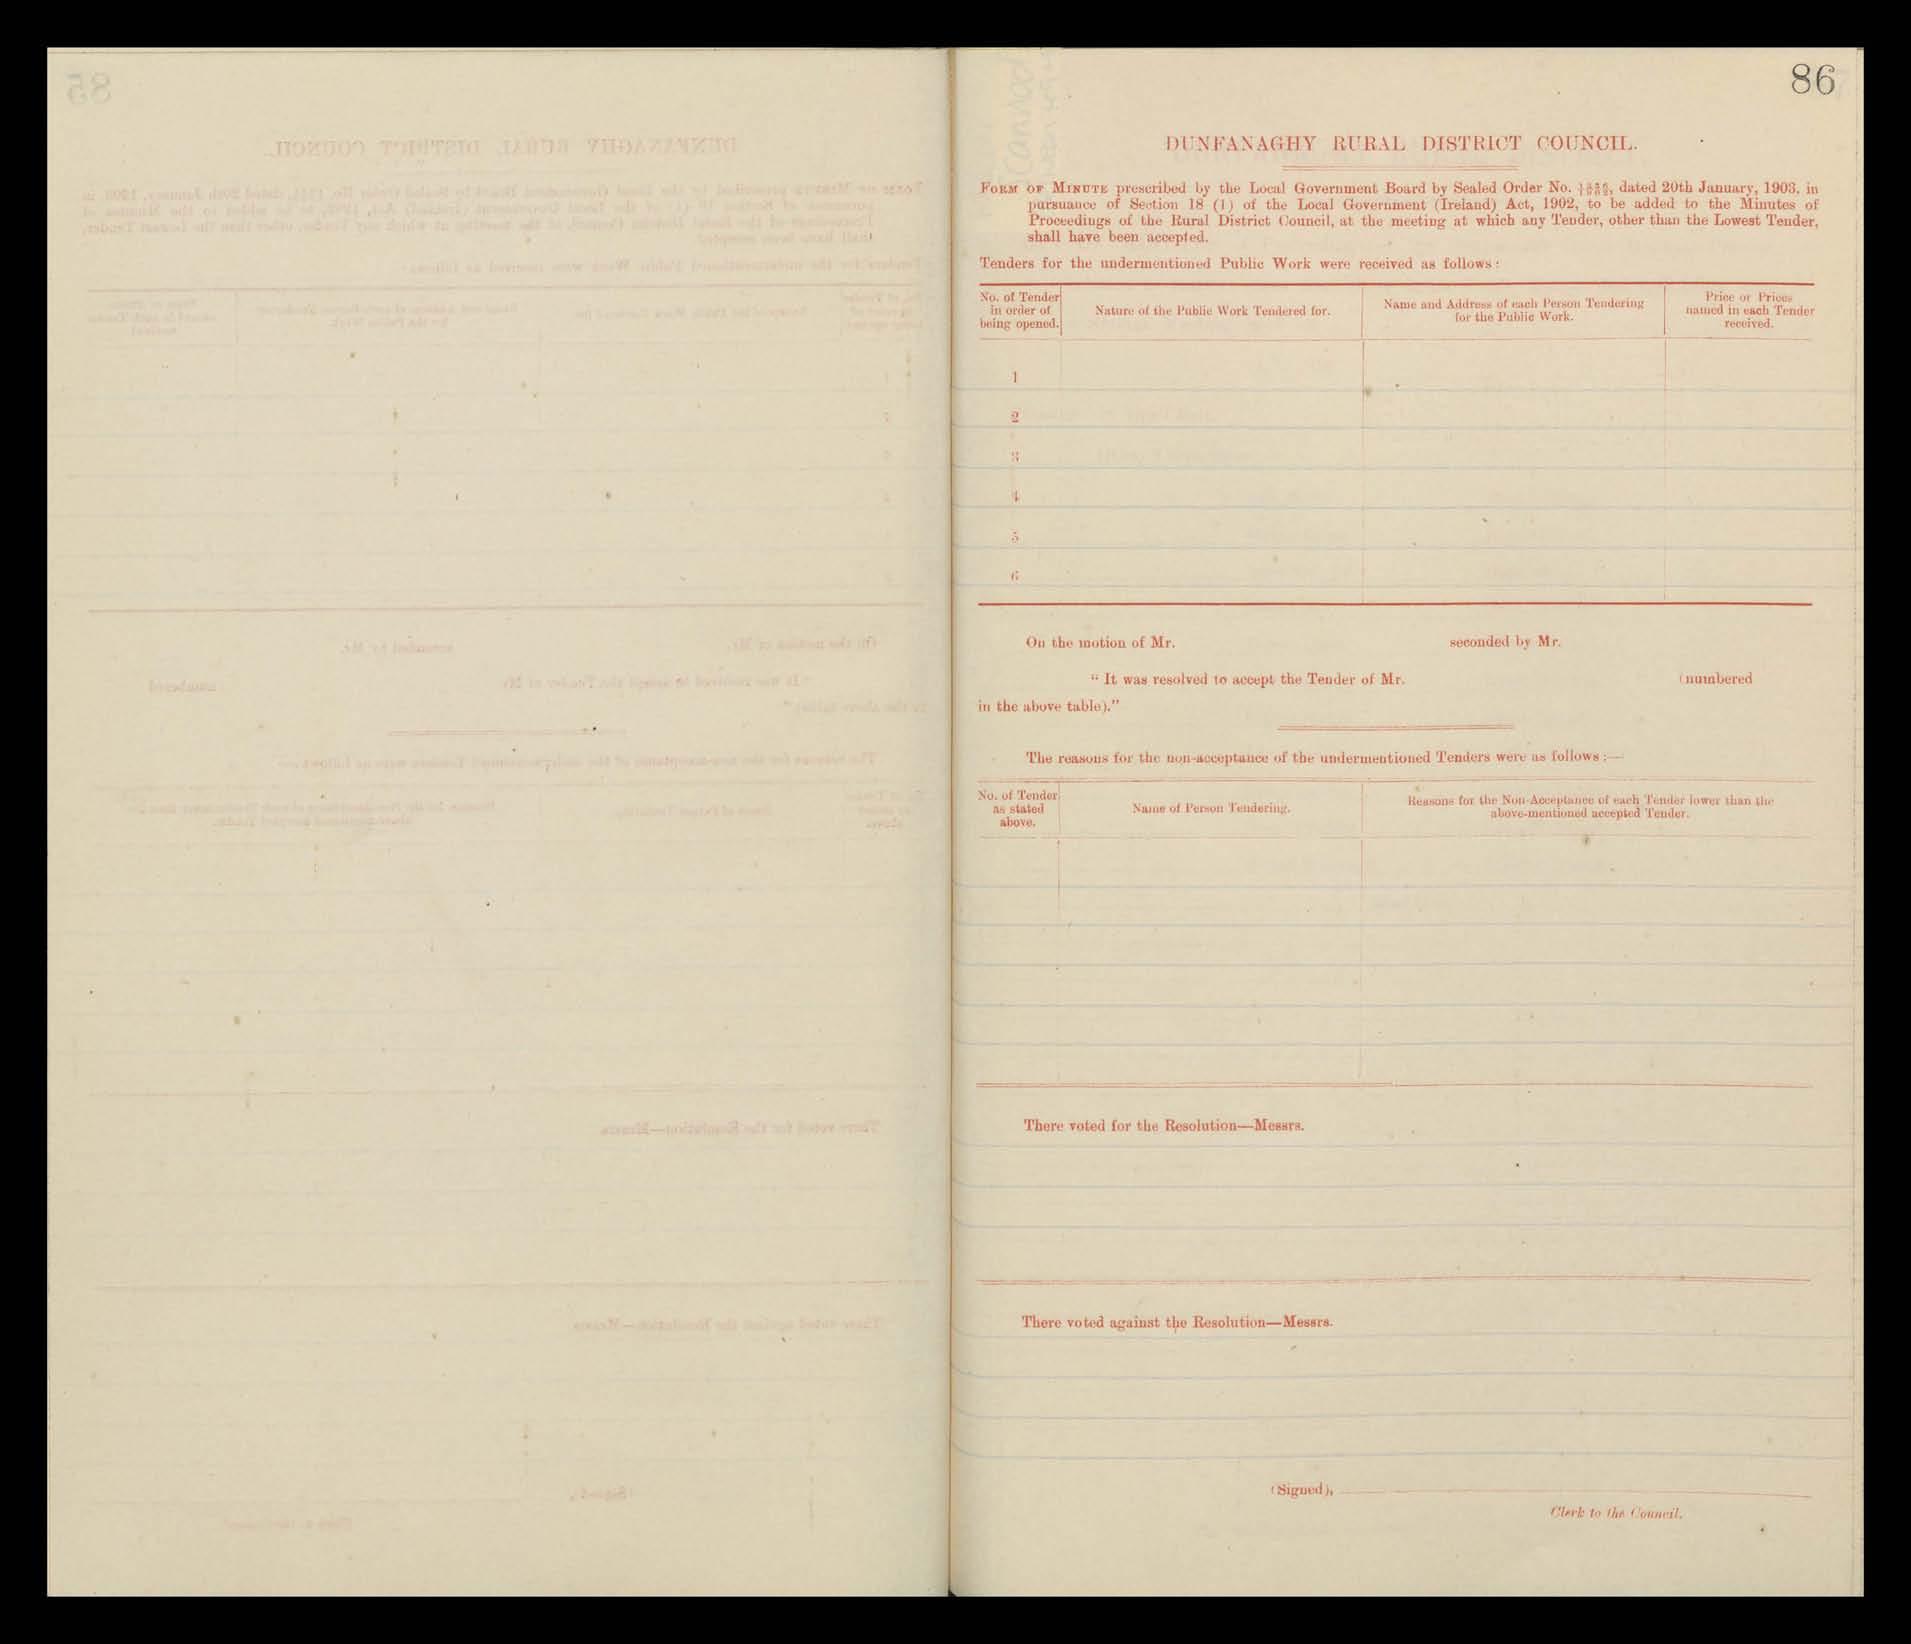 86
DUNFANAGHY RURAL DISTRICT COUNCIL.
FORM OF MINUTE prescribed by the Local Government Board by Sealed Order No. dated 20th January, 1903, in
pursuance of Section 18 (1) of the Local Government (Ireland) Act, 1902, to be added to the Minutes of
Proceedings of the Rural District Council, at the meeting at which any Tender, other than the Lowest Tender,
shall have been accepted.
Tenders for the undermentioned Public Work were received as follows:
No. of Tender
in order of
being opened.
Nature of the Public Work Tendered for.
Name and Address of each Person Tendering
for the Public Work.
Price or Prices
named in each Tender
received.
1
2
3
4
5
6
On the motion of Mr. seconded by Mr.
"It was resolved to accept the Tender of Mr. (numbered
in the above table)."
The reasons for the non-acceptance of the undermentioned Tenders were as follows:—
No. of Tender
as stated
above.
Name of Person Tendering.
Reasons for the Non-Acceptance of each Tender lower than the
above-mentioned accepted Tender.
There voted for the Resolution—Messrs.
There voted against the Resolution—Messrs.
(Signed),
Clerk to the Council.